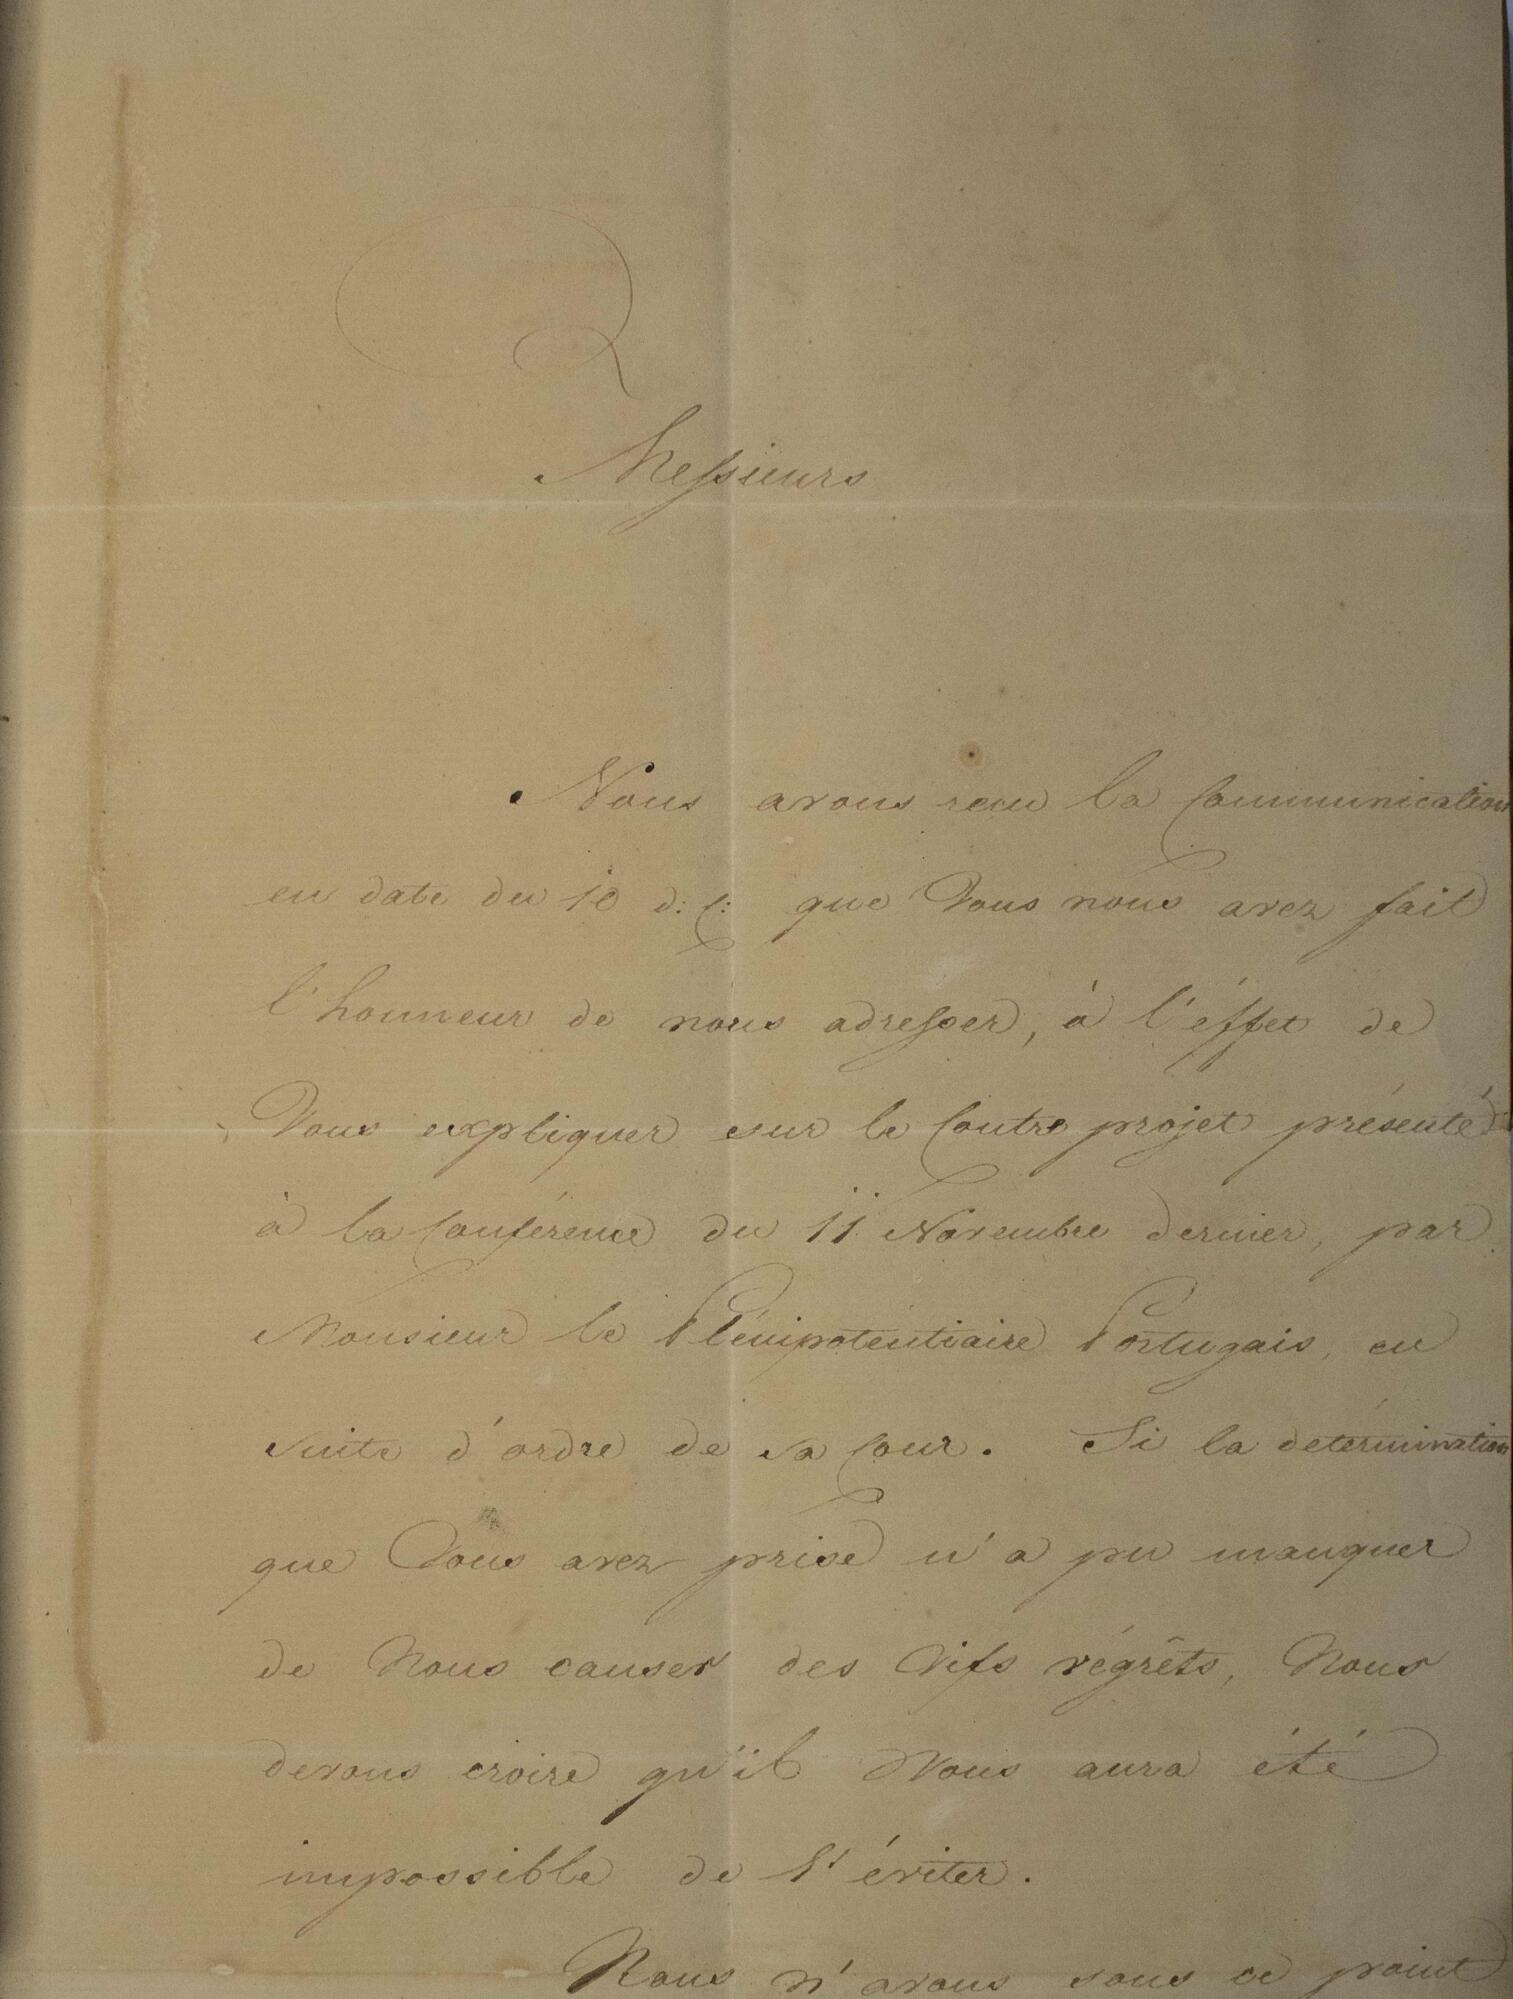 Messieurs
Nous avons recu la Communication
en date du 10 d: C: que Vous nous avez fait
l'honneur de nous adresser, à l'éffet de
Vous expliquer sur le Contre projet présenté
à la Conférence du 11 Novembre dernier, par
Monsieur le Plénipotentiaire Portugais, en
suite d'ordre de sa Cour. Si la détérmination
que Vous avez prise n'a pu manquer
de Nous causer des vifs régrêts, Nous
devons croire qu'il Vous aura été
impossible de l'éviter.
Nous n'avons sous ce point